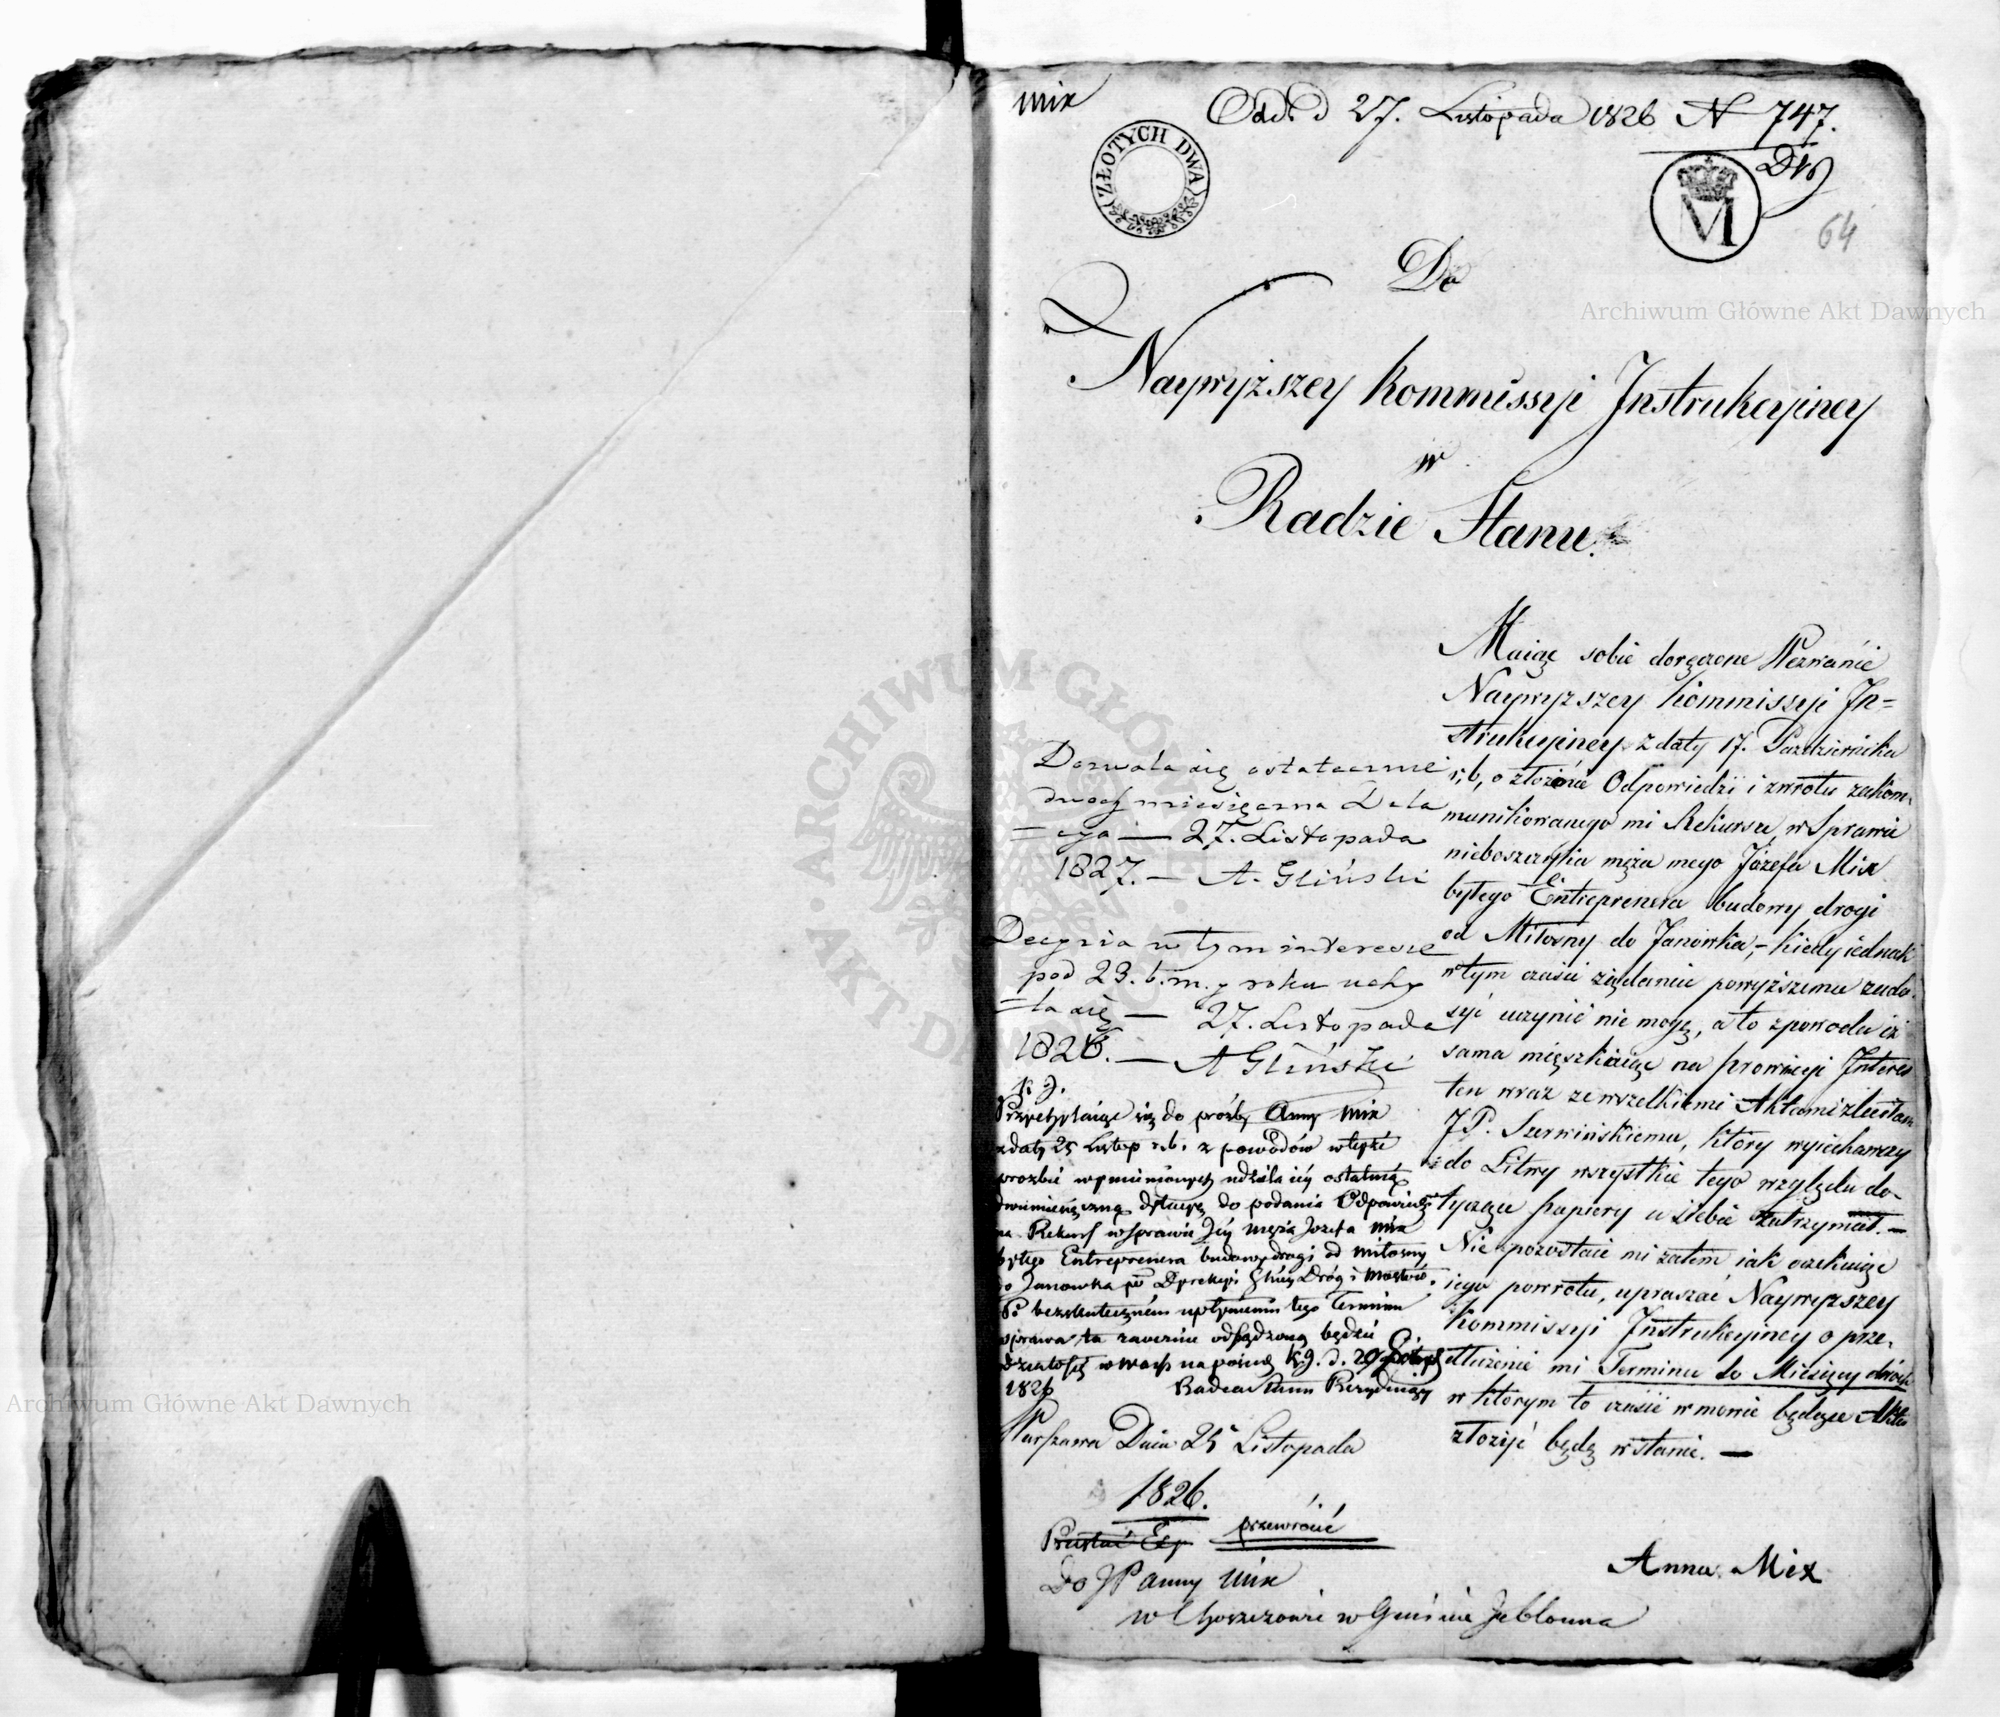 Mix
Odd. d 27. Listopada 1826 N 747.
ZŁOTYCH DWA
M
64
Do
Naywyższey Kommissyi Instrukcyiney
w
Radzie Stanu.
Maiąc sobie doręczone Wezwanie
Naywyższey Kommissyi In=
strukcyiney z daty 17. Października
r, b, o złożenie Odpowiedzi i zwrotu zakom-
munikowanego mi Rekursu, w Sprawie
nieboszczyka męża mego Józefa Mix
byłego Entreprenera budowy drogi
od Miłosny do Janowka, – kiedy iednak
w tym czasie żądaniu powyższemu zado-
syć uczynić nie mogę, a to z powodu iż
sama mięszkaiąc na prowincyi Interes
ten wraz ze wszelkiemi Aktami zleciłam
JP. Szerwińskiemu, który wyiechawszy
do Litwy wszystkie tego względu do-
tyczące papiery u siebie zatrzymał. –
Nie pozostaie mi zatem iak oczekuiąc
iego powrotu, upraszać Naywyższey
Kommissyi Instrukcyiney o prze-
dłużenie mi Terminu do Miesięcy dwóch
w którym to czasie w monie będące Akta
złożyć będę w stanie. –
Anna Mix
Dozwala się ostatecznie
dwuch miesięczna Dila
=cya — 27. Listopada
1827. — A. Gliński
Decyzia w tym interesie
pod 23. b. m. y roku uchy
=la się — 27. Listopada
1826. — A Gliński
K. J.
Przychylaiąc się do prośby Anny Mix
z daty 25 Listop r. b. z powodów w teyże
prozbie wymienionych udziela iéy ostatnią
dwumiesięczną dylacyę do podania Odpowiedzi
na Rekurs w sprawie Jéy męża Jozefa Mix
byłego Entreprenera budowy drogi od Miłosny
do Janowka p̃ Dyrekcyi Głney Dróg i Mostów.
Po bezskutecznem upłynieniu tego Terminu
sprawa ta zaocznie odsądzoną będzie
Działo się w Warsz na posiedz K. J. d. 29
1826 Radca Stanu Prezyduiący
Warszawa Dnia 25 Listopada
1826.
przewrócić
Do JP Anny Mix
w Choszczowce w Gminie Jabłonna
Archiwum Główne Akt Dawnych
Archiwum Główne Akt Dawnych
ARCHIWUM GŁÓWNE AKT DAWNYCH